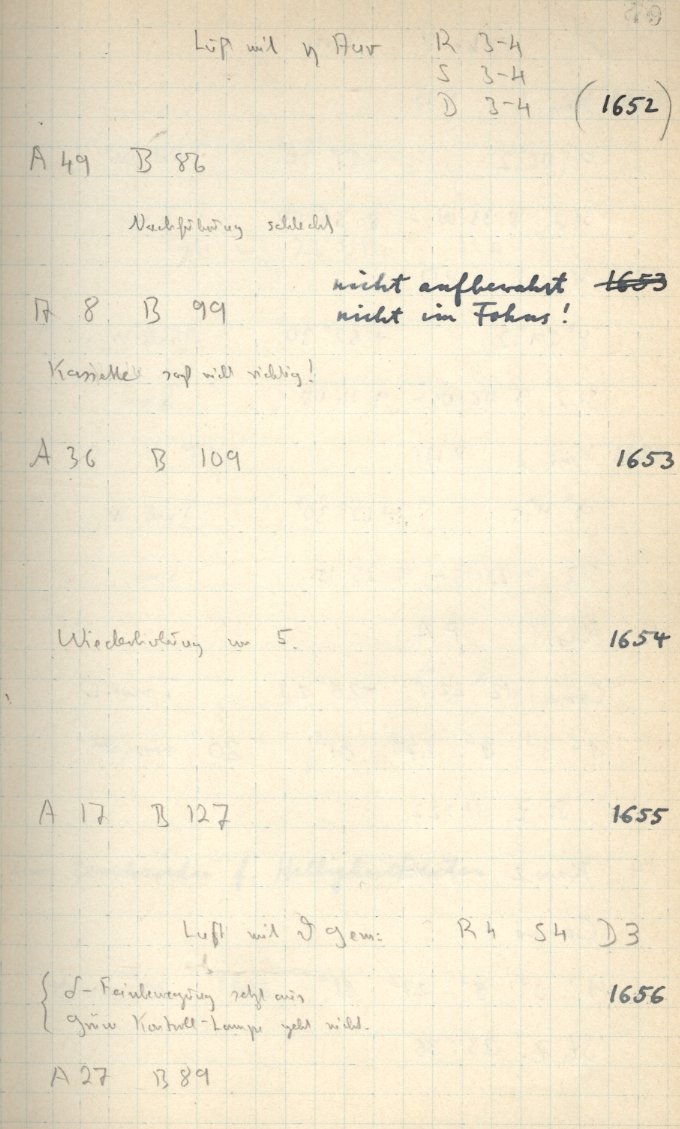 Luft mit η Aur R 3-4
S 3-4
D 3-4 (1652)
A 49 B 86
Nachführung schlecht
nicht aufbewahrt 1653
A 8 B 99 nicht im Fokus!
Kassette saß nicht richtig!
A 36 B 109 1653
Wiederholung von 5. 1654
A 17 B 127 1655
Luft mit ϑ Gem: R 4 S 4 D 3
δ-Feinbewegung setzt aus 1656
Grüne Kontroll-Lampe geht nicht.
A 27 B 89